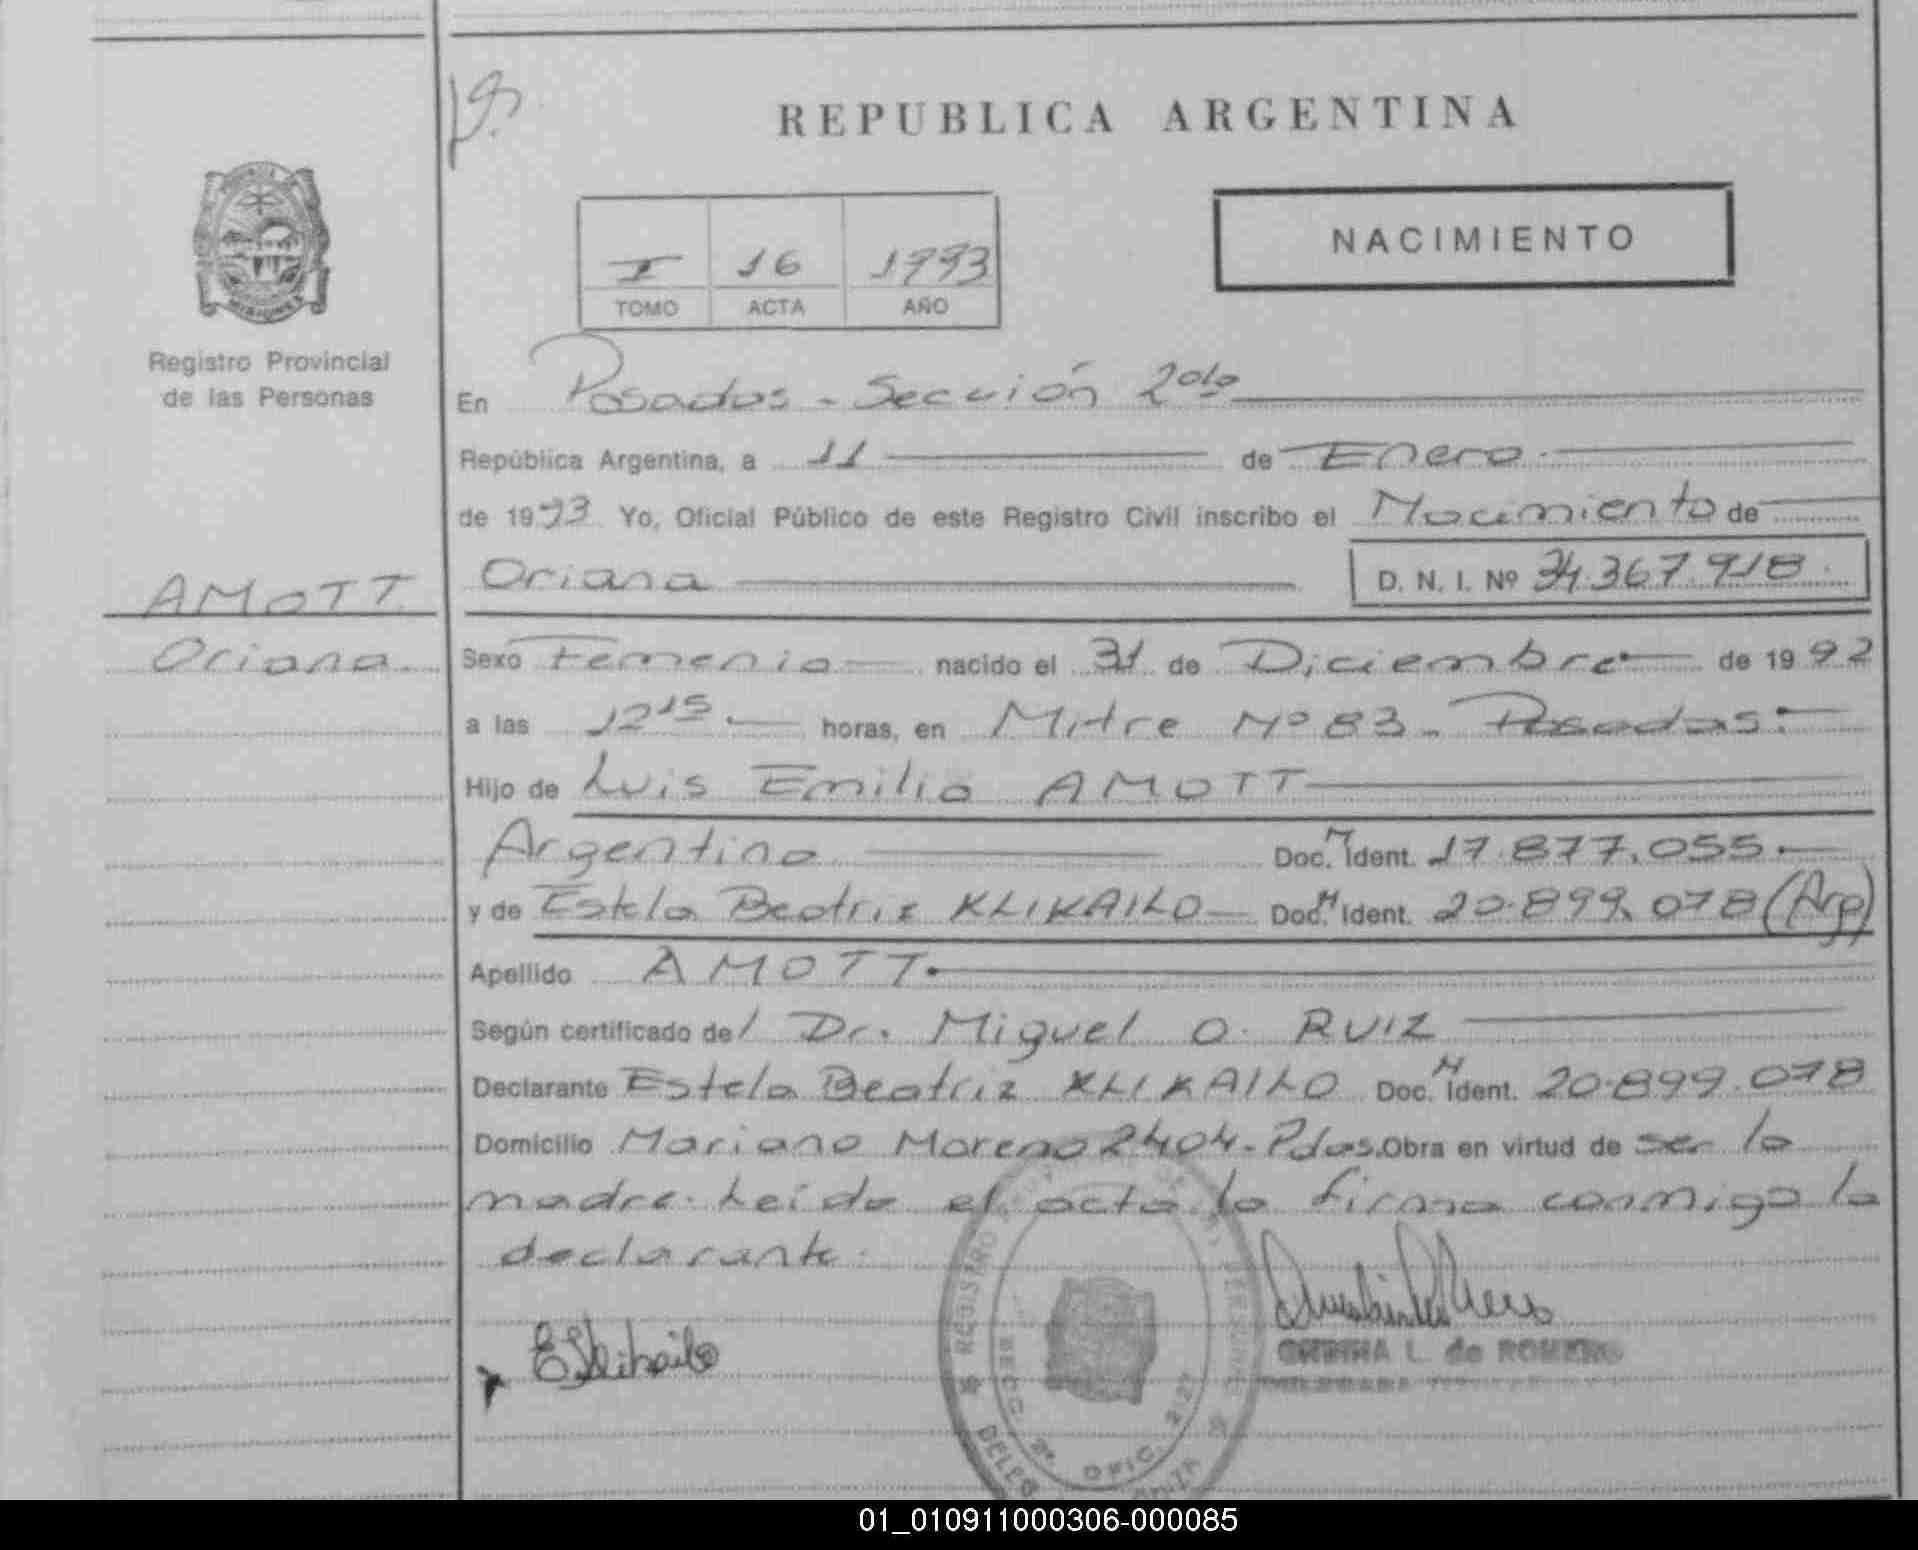 REPUBLICA ARGENTINA
MISIONES
I 16 1993
NACIMIENTO
TOMO ACTA AÑO
Registro Provincial
de las Personas
En Posadas - Sección 2da
República Argentina, a 11 de Enero.
de 1993 Yo, Oficial Público de este Registro Civil inscribo el Nacimiento de
Oriana D. N. I. Nº 34.367.918.
AMOTT
Oriana.
Sexo Femenio nacido el 31 de Diciembre de 1992
a las 12 15. horas, en Mitre Nº 83 - Posadas.
Hijo de Luis Emilio AMOTT
Argentino Doc. M Ident. 17.877.055.
y de Estela Beatriz KLIKAILO Doc. M Ident. 20.899.078 (Arg)
Apellido AMOTT.
Según certificado del Dr. Miguel O. RUIZ
Declarante Estela Beatriz KLIKAILO Doc. M Ident. 20.899.078
Domicilio Mariano Moreno 2404 - Pdas. Obra en virtud de ser la
madre. Leída el acta la firma conmigo la
declarante.
REGISTRO
SECC. 2ª OFIC.
L. de ROMERO
01_010911000306-000085